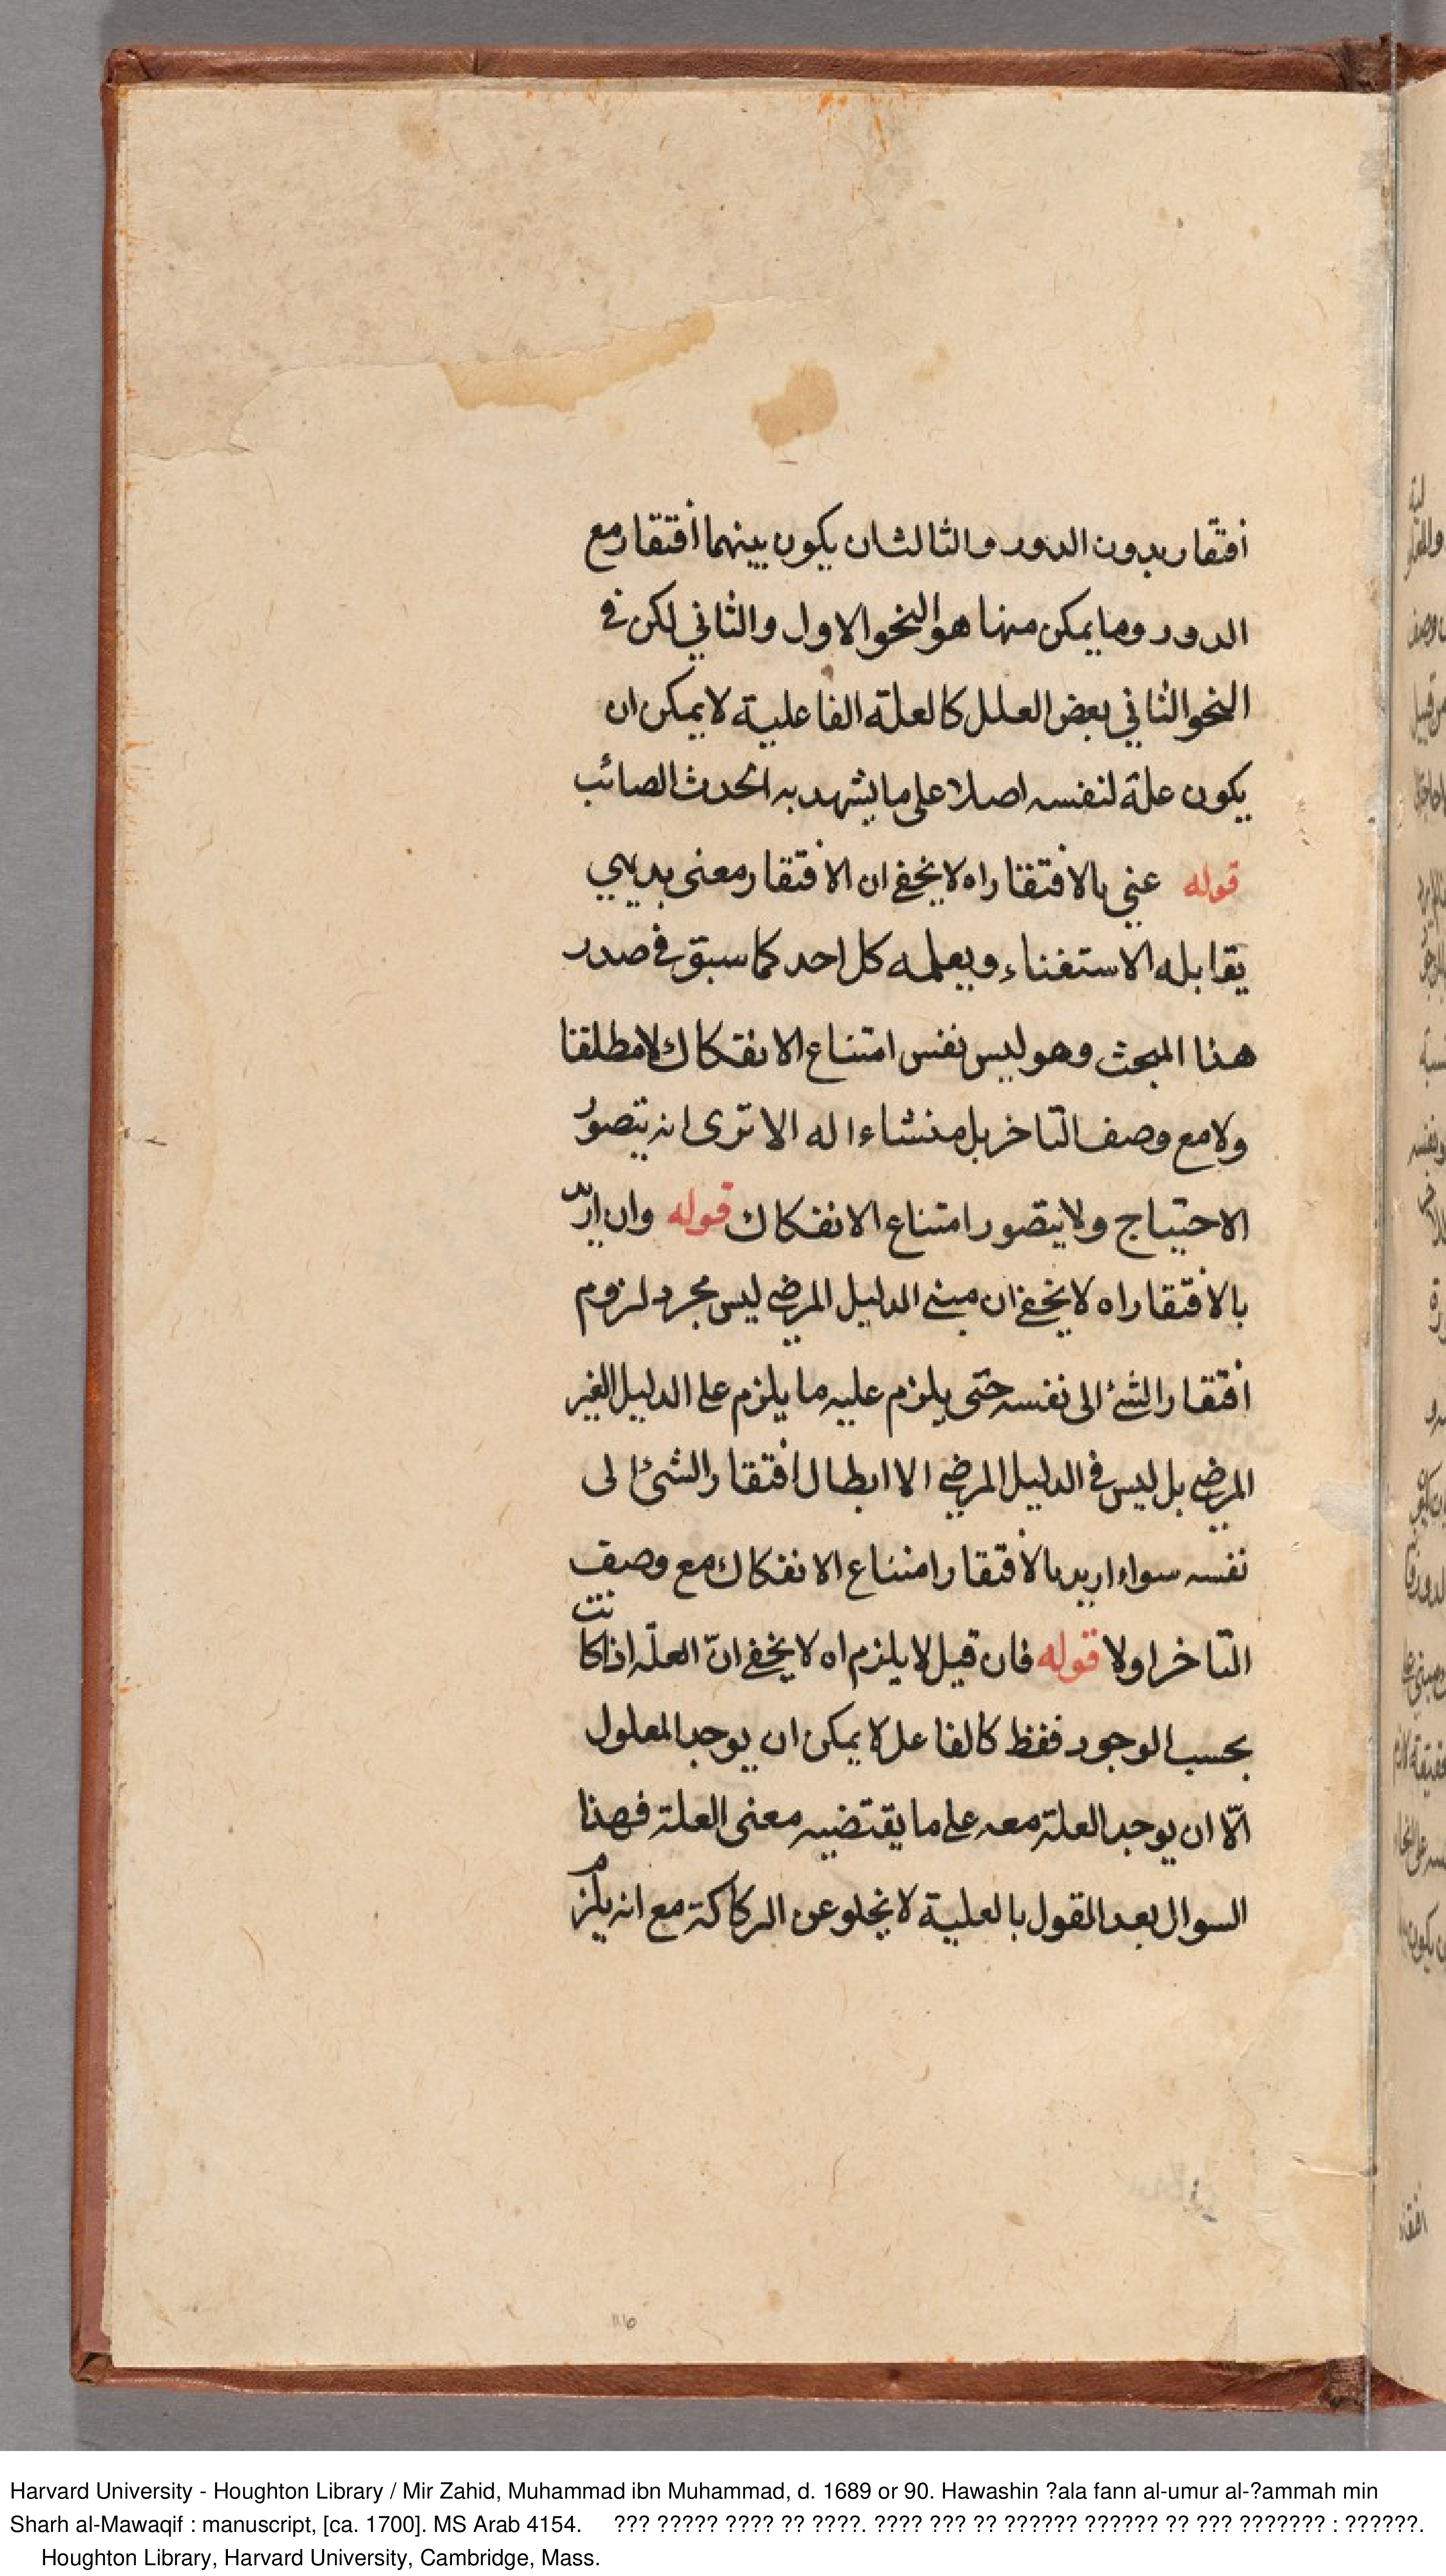 افتقار بدون الدور والثالث ان يكون بينهما افتقار مع
الدور وما يمكن منها هو النحو الاول والثاني لكن في
النحو الثاني بعض العلل كالعلة الفاعلية لا يمكن ان
يكون علة لنفسه اصلا على ما يشهد به الحدث الصائب
قوله عني بالافتقار اه لا يخفى ان الافتقار معنى بديهي
يقابله الاستغناء ويعلمه كل احد كما سبق في صدر
هذا المبحث وهو ليس نفس امتناع الانفكاك لا مطلقا
ولا مع وصف التاخر بل منشاء اله الا ترى انه يتصور
الاحتياج ولا يتصور امتناع الانفكاك قوله وان اريد
بالافتقار اه لا يخفى ان مبنى الدليل المرضي ليس مجرد لزوم
افتقار الشئ الى نفسه حتى يلزم عليه ما يلزم على الدليل الغير
المرضي بل ليس في الدليل المرضي الا ابطال افتقار الشئ الى
نفسه سواء اريد بالافتقار امتناع الانفكاك مع وصف
التاخر اولا قوله فان قيل لا يلزم اه لا يخفى انّ العلّة اذا كانت
بحسب الوجود فقط كالفاعل لا يمكن ان يوجد المعلول
الّا ان يوجد العلة معه على ما يقتضيه معنى العلة فهذا
السوال بعد القول بالعلية لا يخلو عن الركاكة مع انه يلزم
116
Harvard University - Houghton Library / Mir Zahid, Muhammad ibn Muhammad, d. 1689 or 90. Hawashin ?ala fann al-umur al-?ammah min
Sharh al-Mawaqif : manuscript, [ca. 1700]. MS Arab 4154. ??? ????? ???? ?? ????. ???? ??? ?? ?????? ?????? ?? ??? ??????? : ??????.
Houghton Library, Harvard University, Cambridge, Mass.